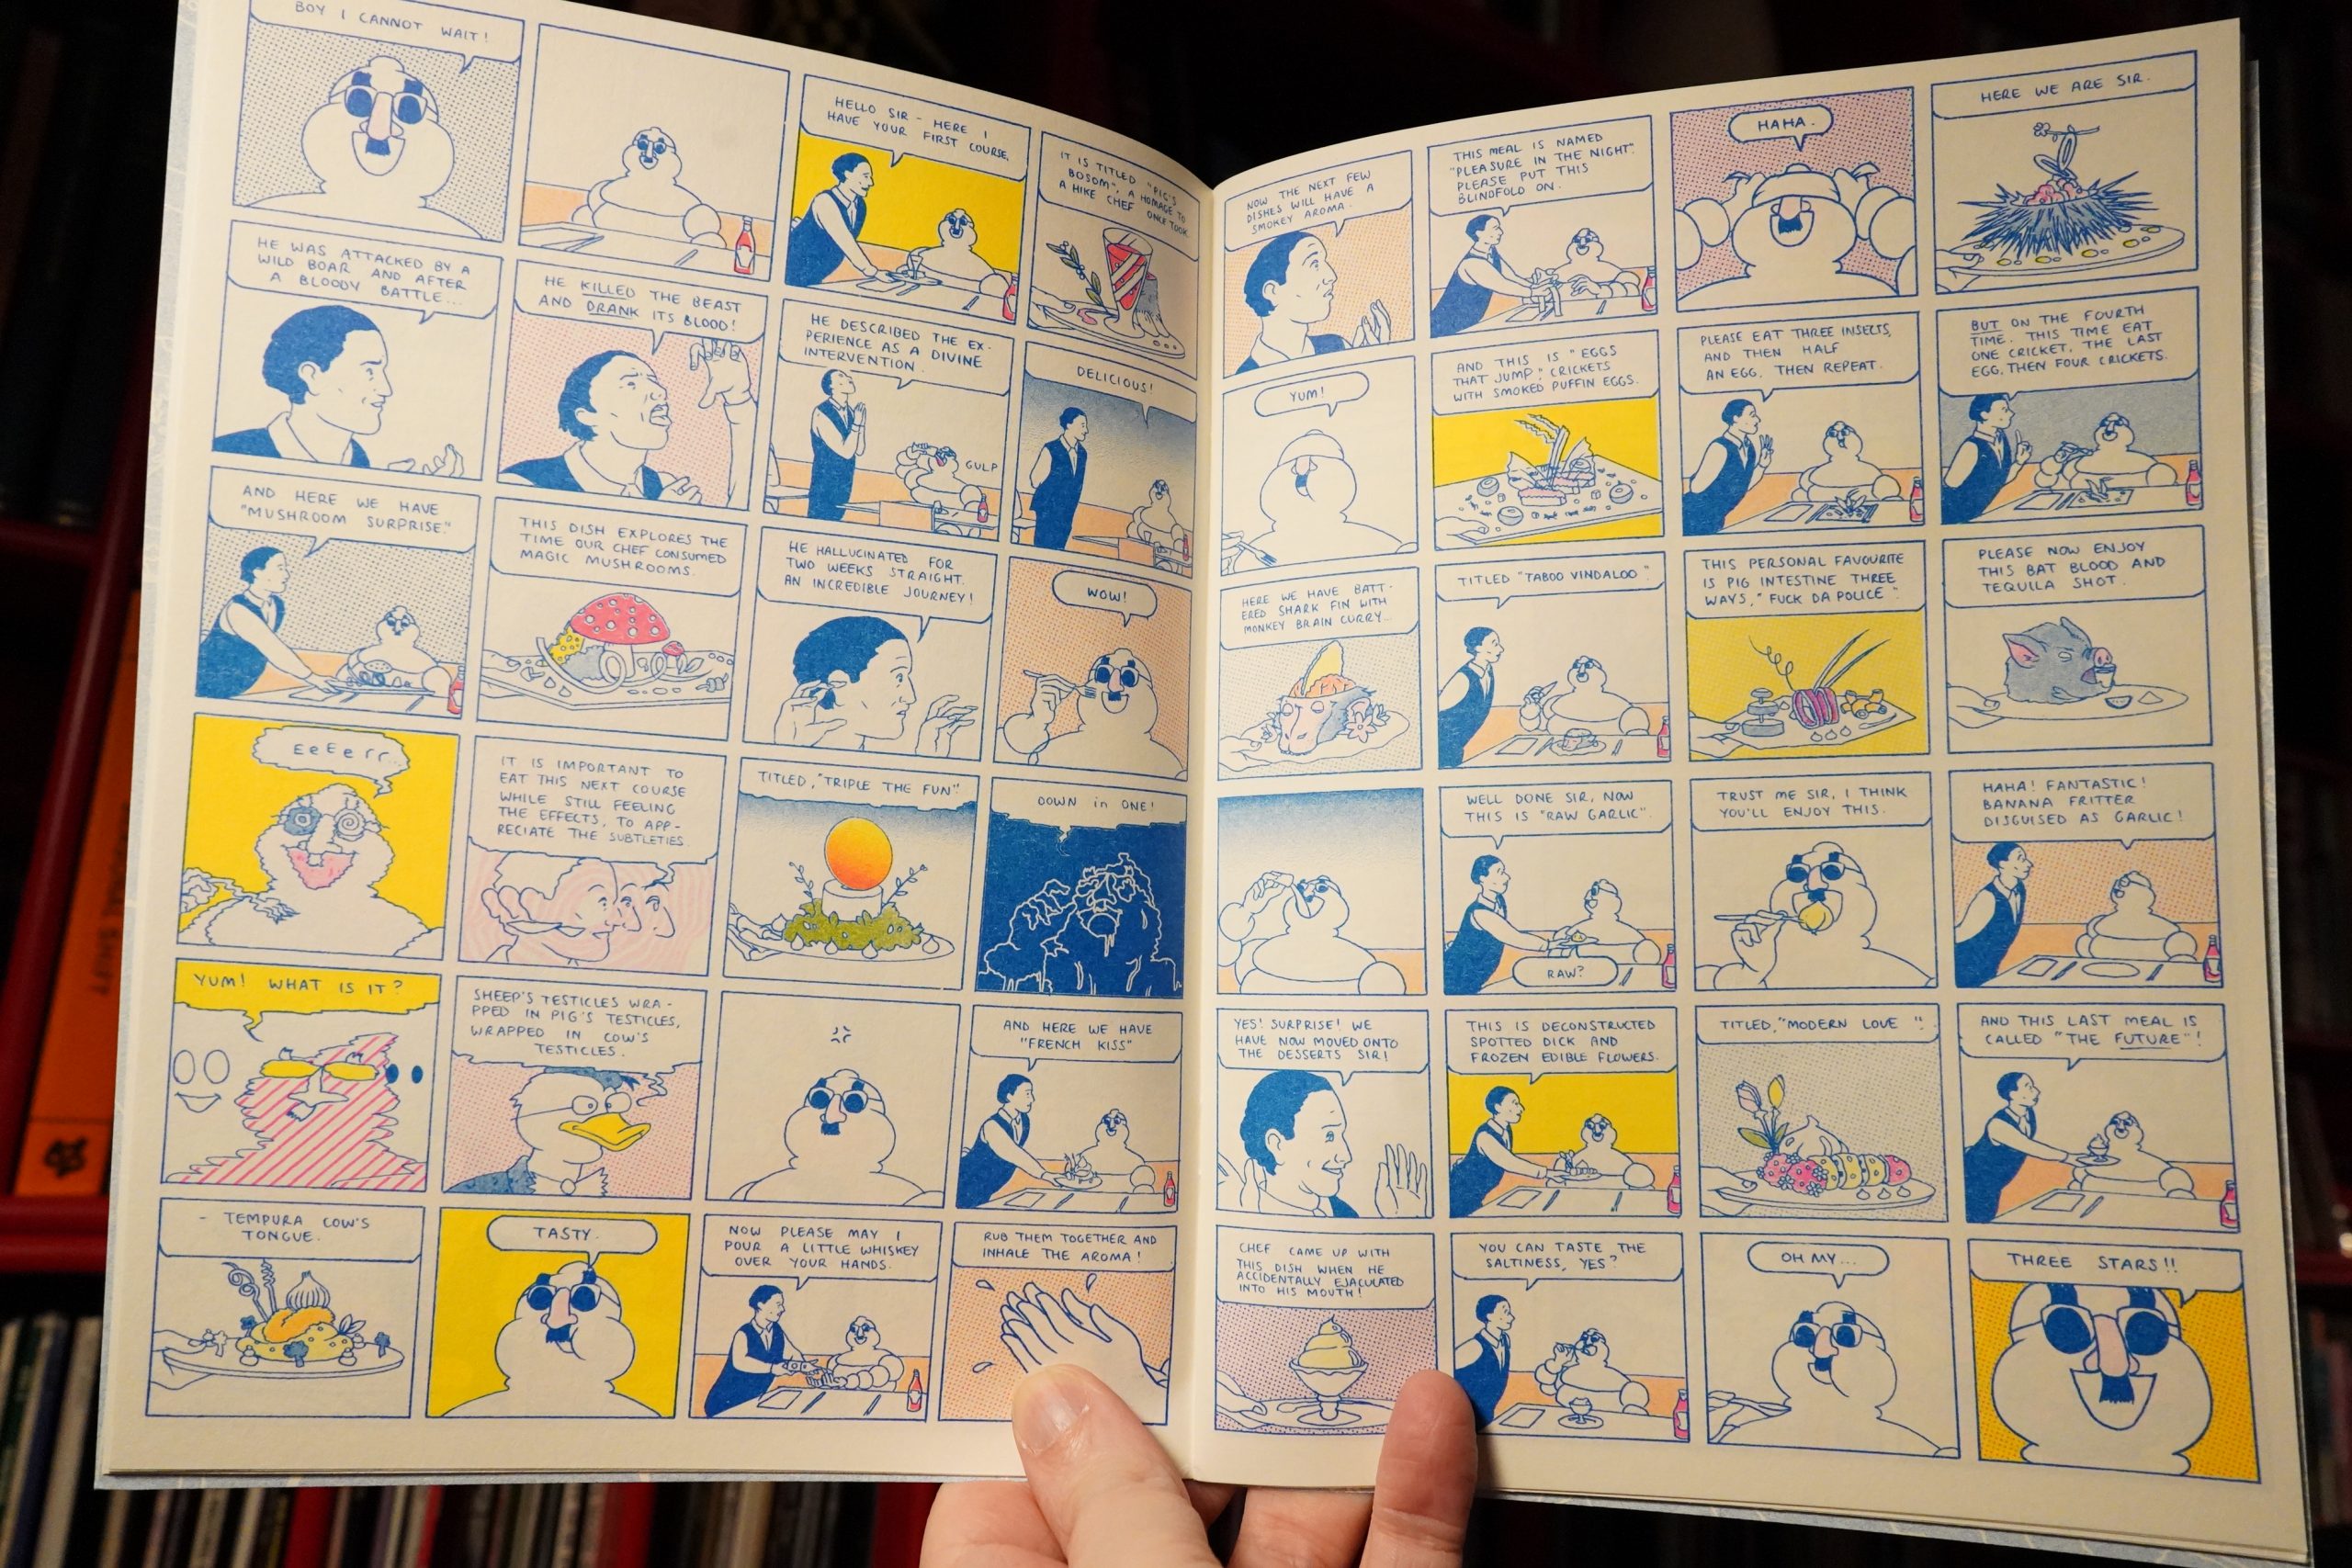 BOY I CANNOT WAIT!
HELLO SIR - HERE I
HAVE YOUR FIRST COURSE,
IT IS TITLED "PIG'S
BOSOM", A HOMAGE TO
A HIKE CHEF ONCE TOOK.
HE WAS ATTACKED BY A
WILD BOAR AND AFTER
A BLOODY BATTLE...
HE KILLED THE BEAST
AND DRANK ITS BLOOD!
HE DESCRIBED THE EX-
PERIENCE AS A DIVINE
INTERVENTION.
GULP
DELICIOUS!
AND HERE WE HAVE
"MUSHROOM SURPRISE".
THIS DISH EXPLORES THE
TIME OUR CHEF CONSUMED
MAGIC MUSHROOMS.
HE HALLUCINATED FOR
TWO WEEKS STRAIGHT.
AN INCREDIBLE JOURNEY!
WOW!
EeEerr..
IT IS IMPORTANT TO
EAT THIS NEXT COURSE
WHILE STILL FEELING
THE EFFECTS, TO APP-
RECIATE THE SUBTLETIES.
TITLED, "TRIPLE THE FUN".
DOWN in ONE!
YUM! WHAT IS IT?
SHEEP'S TESTICLES WRA-
PPED IN PIG'S TESTICLES,
WRAPPED IN COW'S
TESTICLES.
AND HERE WE HAVE
"FRENCH KISS"
- TEMPURA COW'S
TONGUE.
TASTY.
NOW PLEASE MAY I
POUR A LITTLE WHISKEY
OVER YOUR HANDS.
RUB THEM TOGETHER AND
INHALE THE AROMA!
NOW THE NEXT FEW
DISHES WILL HAVE A
SMOKEY AROMA.
THIS MEAL IS NAMED
"PLEASURE IN THE NIGHT".
PLEASE PUT THIS
BLINDFOLD ON.
HAHA.
HERE WE ARE SIR.
YUM!
AND THIS IS "EGGS
THAT JUMP", CRICKETS
WITH SMOKED PUFFIN EGGS.
PLEASE EAT THREE INSECTS,
AND THEN HALF
AN EGG. THEN REPEAT.
BUT ON THE FOURTH
TIME. THIS TIME EAT
ONE CRICKET, THE LAST
EGG, THEN FOUR CRICKETS.
HERE WE HAVE BATT-
ERED SHARK FIN WITH
MONKEY BRAIN CURRY...
TITLED "TABOO VINDALOO".
THIS PERSONAL FAVOURITE
IS PIG INTESTINE THREE
WAYS, "FUCK DA POLICE".
PLEASE NOW ENJOY
THIS BAT BLOOD AND
TEQUILA SHOT.
WELL DONE SIR, NOW
THIS IS "RAW GARLIC".
RAW?
TRUST ME SIR, I THINK
YOU'LL ENJOY THIS.
HAHA! FANTASTIC!
BANANA FRITTER
DISGUISED AS GARLIC!
YES! SURPRISE! WE
HAVE NOW MOVED ONTO
THE DESSERTS SIR!
THIS IS DECONSTRUCTED
SPOTTED DICK AND
FROZEN EDIBLE FLOWERS.
TITLED, "MODERN LOVE".
AND THIS LAST MEAL IS
CALLED "THE FUTURE"!
CHEF CAME UP WITH
THIS DISH WHEN HE
ACCIDENTALLY EJACULATED
INTO HIS MOUTH!
YOU CAN TASTE THE
SALTINESS, YES?
OH MY...
THREE STARS!!